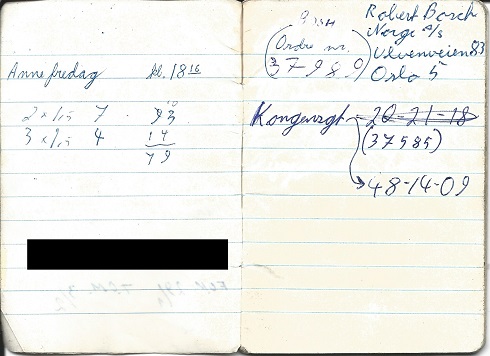 Anne fredag kl. 18 16
2 x 1,5 7
3 x 1,5 4
93
14
79
Robert Bosch
Norge a/s
Ulvenveien 83
Oslo 5
(Ordre nr.
37989)
Kongensgt - 20-21-18
(37585)
48-14-09